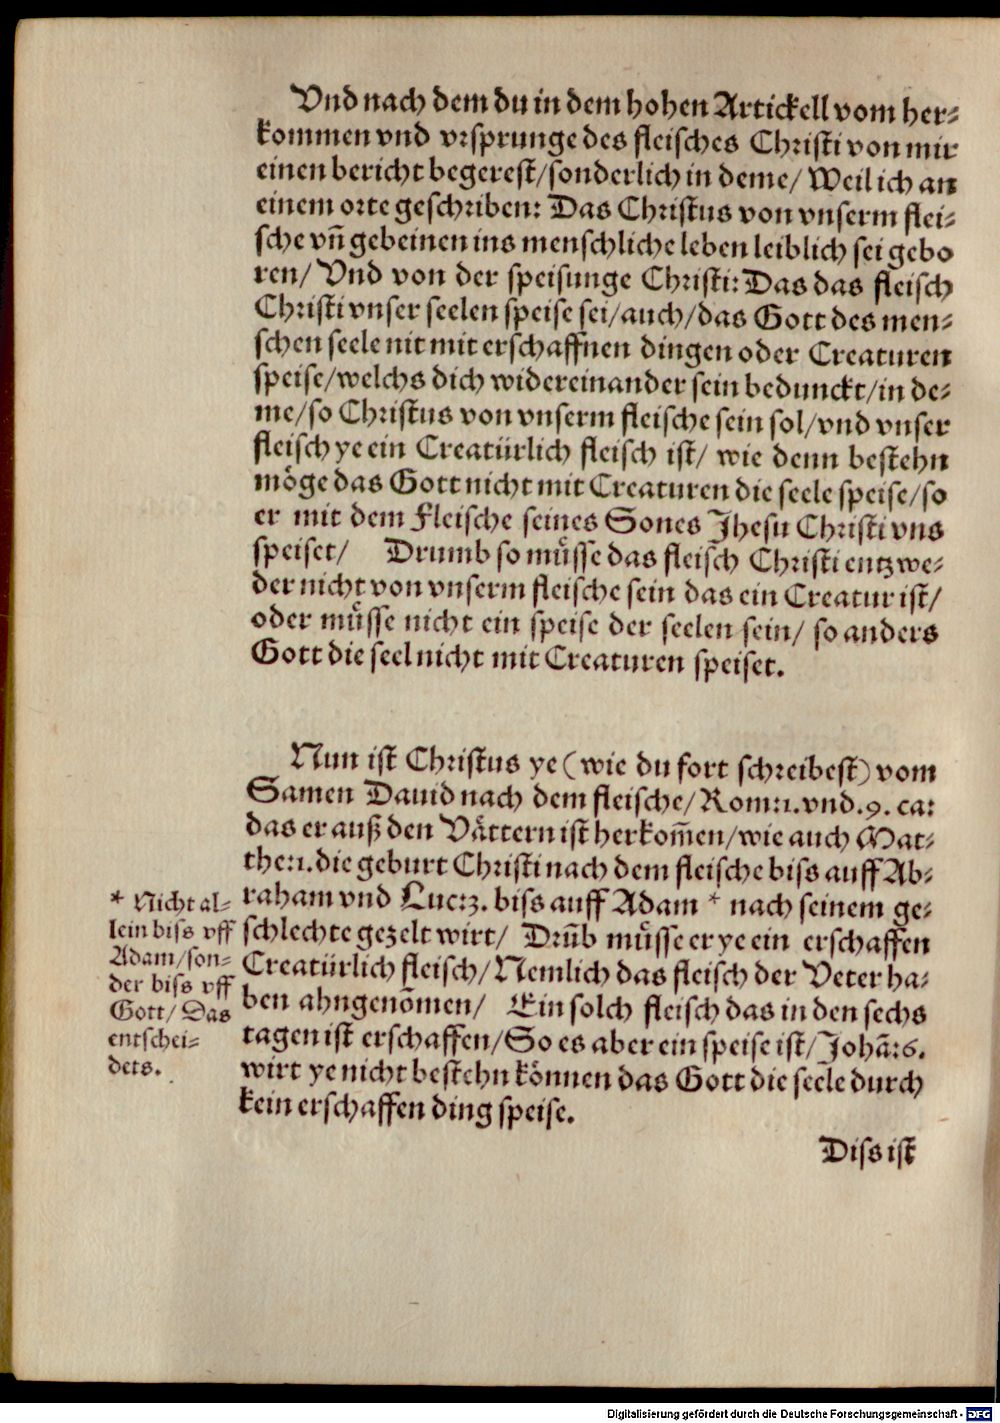 Vnd nach dem du in dem hohen Artickell vom her-
kommen vnd vrsprunge des fleisches Christi von mir
einen bericht begerest/sonderlich in deme/ Weil ich an
einem orte geschriben: Das Christus von vnserm flei-
sche vñ gebeinen ins menschliche leben leiblich sei gebo
ren/ Vnd von der speisunge Christi: Das das fleisch
Christi vnser seelen speise sei/auch/das Gott des men-
schen seele nit mit erschaffnen dingen oder Creaturen
speise/welchs dich widereinander sein bedunckt/in de-
me/so Christus von vnserm fleische sein sol/vnd vnser
fleisch ye ein Creatürlich fleisch ist/ wie denn bestehn
möge das Gott nicht mit Creaturen die seele speise/so
er mit dem Fleische seines Sones Jhesu Christi vns
speiset/ Drumb so müsse das fleisch Christi entzwe-
der nicht von vnserm fleische sein das ein Creatur ist/
oder müsse nicht ein speise der seelen sein/ so anders
Gott die seel nicht mit Creaturen speiset.
Nun ist Christus ye (wie du fort schreibest) vom
Samen Dauid nach dem fleische/ Rom:1.vnd.9. ca:
das er auß den Vättern ist herkom̃en/wie auch Mat-
the:1.die geburt Christi nach dem fleische biss auff Ab-
raham vnd Luc:3. biss auff Adam * nach seinem ge-
schlechte gezelt wirt/ Drũb müsse er ye ein erschaffen
Creatürlich fleisch/Nemlich das fleisch der Veter ha-
ben ahngenõmen/ Ein solch fleisch das in den sechs
tagen ist erschaffen/So es aber ein speise ist/Johã:6.
wirt ye nicht bestehn können das Gott die seele durch
kein erschaffen ding speise.
* Nicht al-
lein biss vff
Adam/son-
der biss vff
Gott/ Das
entschei-
dets.
Diss ist
Digitalisierung gefördert durch die Deutsche Forschungsgemeinschaft - DFG